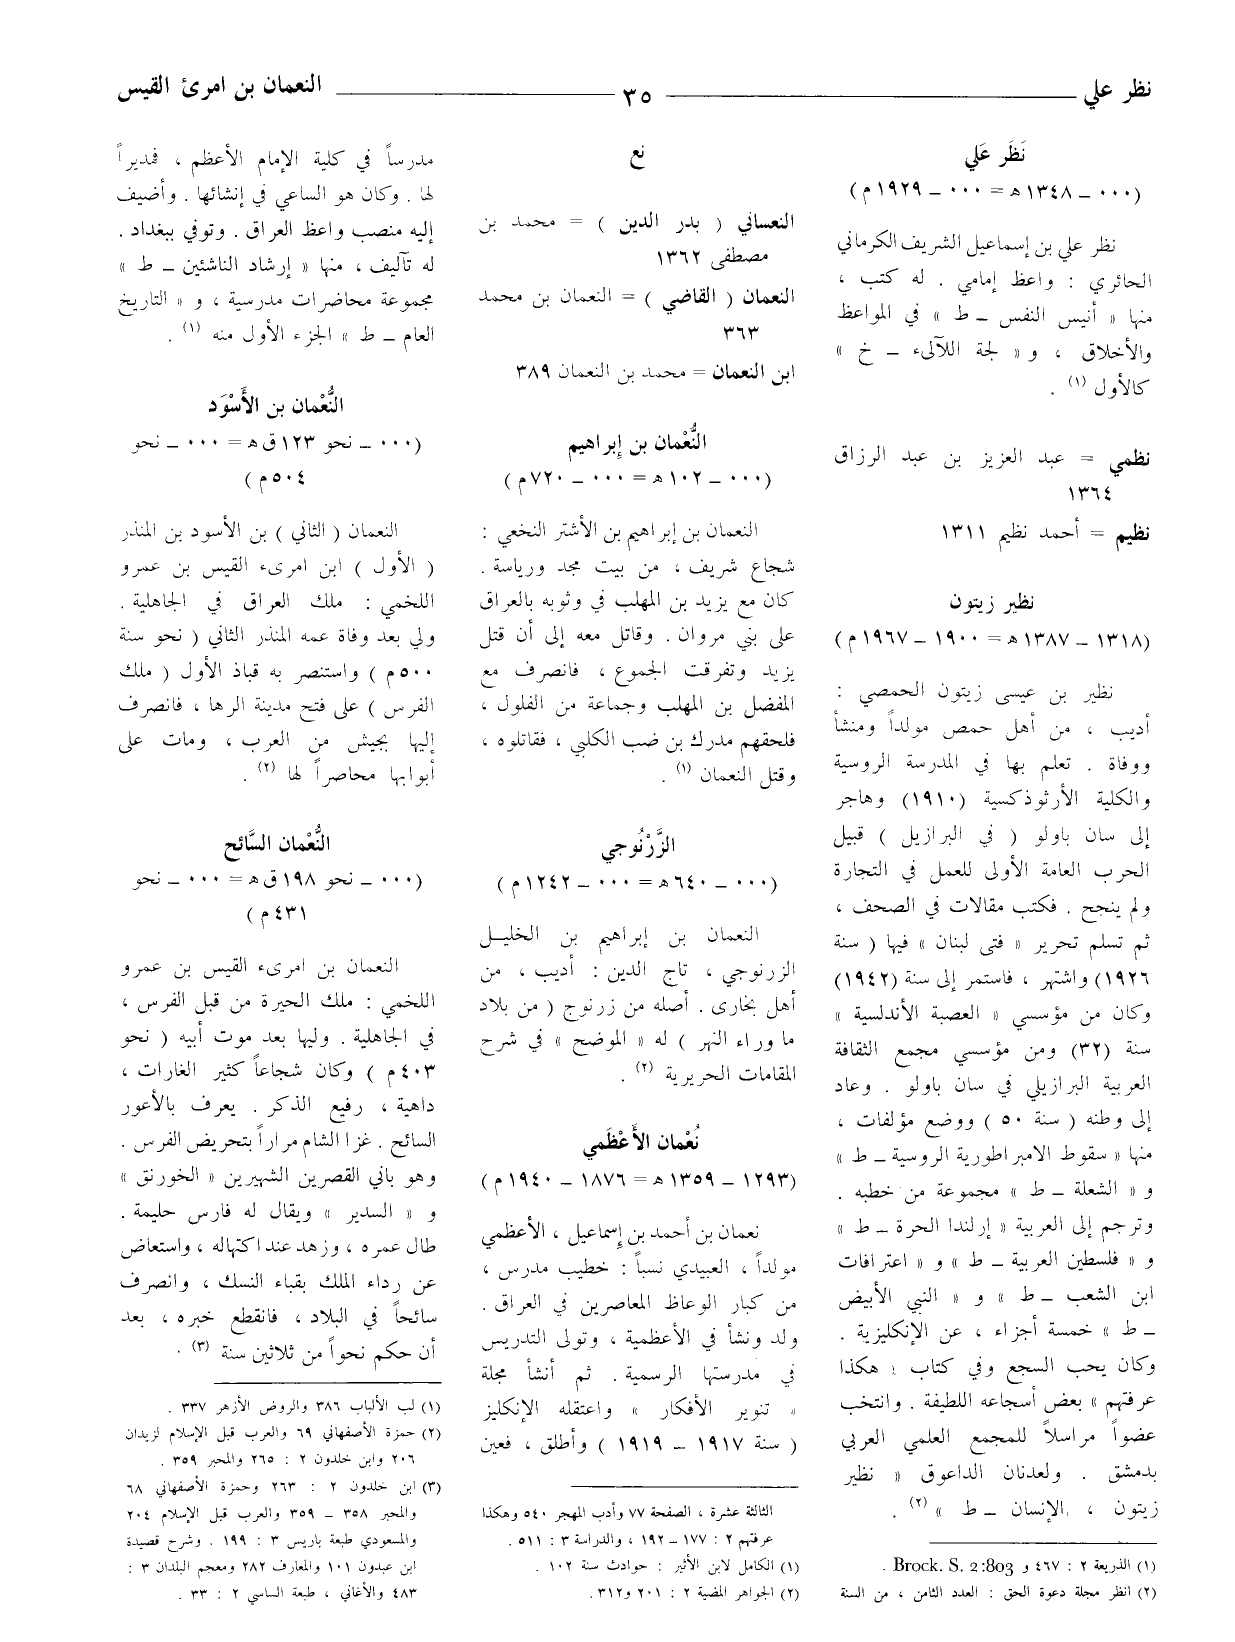 نظر علي
٣٥
النعمان بن امرئ القيس
نَظَر عَلي
(٠٠٠ ـ ١٣٤٨ هـ = ٠٠٠ ـ ١٩٢٩ م)
نظر علي بن إسماعيل الشريف الكرماني
الحائري : واعظ إمامي . له كتب ،
منها « أنيس النفس ـ ط » في المواعظ
والأخلاق ، و « لجة اللآلىء ـ خ »
كالأول (١) .
نظمي = عبد العزيز بن عبد الرزاق
١٣٦٤
نظيم = أحمد نظيم ١٣١١
نظير زيتون
(١٣١٨ ـ ١٣٨٧ هـ = ١٩٠٠ ـ ١٩٦٧ م)
نظير بن عيسى زيتون الحمصي :
أديب ، من أهل حمص مولداً ومنشأ
ووفاة . تعلم بها في المدرسة الروسية
والكلية الأرثوذكسية (١٩١٠) وهاجر
إلى سان باولو ( في البرازيل ) قبيل
الحرب العامة الأولى للعمل في التجارة
ولم ينجح . فكتب مقالات في الصحف ،
ثم تسلم تحرير « فتى لبنان » فيها ( سنة
١٩٢٦) واشتهر ، فاستمر إلى سنة (١٩٤٢)
وكان من مؤسسي « العصبة الأندلسية »
سنة (٣٢) ومن مؤسسي مجمع الثقافة
العربية البرازيلي في سان باولو . وعاد
إلى وطنه ( سنة ٥٠ ) ووضع مؤلفات ،
منها « سقوط الامبراطورية الروسية ـ ط »
و « الشعلة ـ ط » مجموعة من خطبه .
وترجم إلى العربية « إرلندا الحرة ـ ط »
و « فلسطين العربية ـ ط » و « اعترافات
ابن الشعب ـ ط » و « النبي الأبيض
ـ ط » خمسة أجزاء ، عن الإنكليزية .
وكان يحب السجع وفي كتاب « هكذا
عرفتهم » بعض أسجاعه اللطيفة . وانتخب
عضواً مراسلاً للمجمع العلمي العربي
بدمشق . ولعدنان الداعوق « نظير
زيتون ، الإنسان ـ ط » (٢) .
(١) الذريعة ٢ : ٤٦٧ و Brock. S. 2:803 .
(٢) انظر مجلة دعوة الحق : العدد الثامن ، من السنة
نع
النعساني ( بدر الدين ) = محمد بن
مصطفى ١٣٦٢
النعمان ( القاضي ) = النعمان بن محمد
٣٦٣
ابن النعمان = محمد بن النعمان ٣٨٩
النُّعْمان بن إبراهيم
(٠٠٠ ـ ١٠٢ هـ = ٠٠٠ ـ ٧٢٠ م)
النعمان بن إبراهيم بن الأشتر النخعي :
شجاع شريف ، من بيت مجد ورياسة .
كان مع يزيد بن المهلب في وثوبه بالعراق
على بني مروان . وقاتل معه إلى أن قتل
يزيد وتفرقت الجموع ، فانصرف مع
المفضل بن المهلب وجماعة من الفلول ،
فلحقهم مدرك بن ضب الكلبي ، فقاتلوه ،
وقتل النعمان (١) .
الزَّرْنُوجي
(٠٠٠ ـ ٦٤٠ هـ = ٠٠٠ ـ ١٢٤٢ م)
النعمان بن إبراهيم بن الخليل
الزرنوجي ، تاج الدين : أديب ، من
أهل بخارى . أصله من زرنوج ( من بلاد
ما وراء النهر ) له « الموضح » في شرح
المقامات الحريرية (٢) .
نُعْمان الأَعْظَمي
(١٢٩٣ ـ ١٣٥٩ هـ = ١٨٧٦ ـ ١٩٤٠ م)
نعمان بن أحمد بن إسماعيل ، الأعظمي
مولداً ، العبيدي نسباً : خطيب مدرس ،
من كبار الوعاظ المعاصرين في العراق .
ولد ونشأ في الأعظمية ، وتولى التدريس
في مدرستها الرسمية . ثم أنشأ مجلة
« تنوير الأفكار » واعتقله الإنكليز
( سنة ١٩١٧ ـ ١٩١٩ ) وأطلق ، فعين
الثالثة عشرة ، الصفحة ٧٧ وأدب المهجر ٥٤٠ وهكذا
عرفتهم ٢ : ١٧٧ ـ ١٩٢ ، والدراسة ٣ : ٥١١ .
(١) الكامل لابن الأثير : حوادث سنة ١٠٢ .
(٢) الجواهر المضية ٢ : ٢٠١ و٣١٢ .
مدرساً في كلية الإمام الأعظم ، فمديراً
لها . وكان هو الساعي في إنشائها . وأضيف
إليه منصب واعظ العراق . وتوفي ببغداد .
له تآليف ، منها « إرشاد الناشئين ـ ط »
مجموعة محاضرات مدرسية ، و « التاريخ
العام ـ ط » الجزء الأول منه (١) .
النُّعْمان بن الأَسْوَد
(٠٠٠ ـ نحو ١٢٣ ق هـ = ٠٠٠ ـ نحو
٥٠٤ م)
النعمان ( الثاني ) بن الأسود بن المنذر
( الأول ) ابن امرىء القيس بن عمرو
اللخمي : ملك العراق في الجاهلية .
ولي بعد وفاة عمه المنذر الثاني ( نحو سنة
٥٠٠ م ) واستنصر به قباذ الأول ( ملك
الفرس ) على فتح مدينة الرها ، فانصرف
إليها بجيش من العرب ، ومات على
أبوابها محاصراً لها (٢) .
النُّعْمان السَّائح
(٠٠٠ ـ نحو ١٩٨ ق هـ = ٠٠٠ ـ نحو
٤٣١ م)
النعمان بن امرىء القيس بن عمرو
اللخمي : ملك الحيرة من قبل الفرس ،
في الجاهلية . وليها بعد موت أبيه ( نحو
٤٠٣ م ) وكان شجاعاً كثير الغارات ،
داهية ، رفيع الذكر . يعرف بالأعور
السائح . غزا الشام مراراً بتحريض الفرس .
وهو باني القصرين الشهيرين « الخورنق »
و « السدير » ويقال له فارس حليمة .
طال عمره ، وزهد عند اكتهاله ، واستعاض
عن رداء الملك بقباء النسك ، وانصرف
سائحاً في البلاد ، فانقطع خبره ، بعد
أن حكم نحواً من ثلاثين سنة (٣) .
(١) لب الألباب ٣٨٦ والروض الأزهر ٣٣٧ .
(٢) حمزة الأصفهاني ٦٩ والعرب قبل الإسلام لزيدان
٢٠٦ وابن خلدون ٢ : ٢٦٥ والمحبر ٣٥٩ .
(٣) ابن خلدون ٢ : ٢٦٣ وحمزة الأصفهاني ٦٨
والمحبر ٣٥٨ ـ ٣٥٩ والعرب قبل الإسلام ٢٠٤
والمسعودي طبعة باريس ٣ : ١٩٩ . وشرح قصيدة
ابن عبدون ١٠١ والمعارف ٢٨٢ ومعجم البلدان ٣ :
٤٨٣ والأغاني ، طبعة الساسي ٢ : ٣٣ .